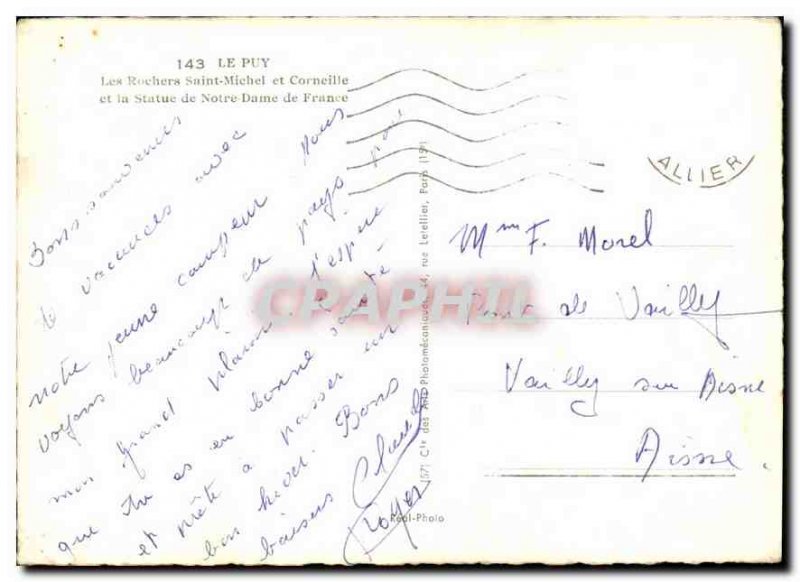 143 LE PUY
Les Rochers Saint-Michel et Corneille
et la Statue de Notre-Dame de France
Bons souvenirs
de vacances avec
notre jeune campeur nous
voyons beaucoup de pays pour
mon grand plaisir. J'espère
que tu es en bonne santé
et prête à passer un
bon hiver. Bons
baisers Claude
Roger
ALLIER
Mme F. Morel
de Vailly
Vailly sur Aisne
Aisne
(57) Cie des Arts Photomécaniques, 44, rue Letellier, Paris (15e)
Réal-Photo
CPAPHIL